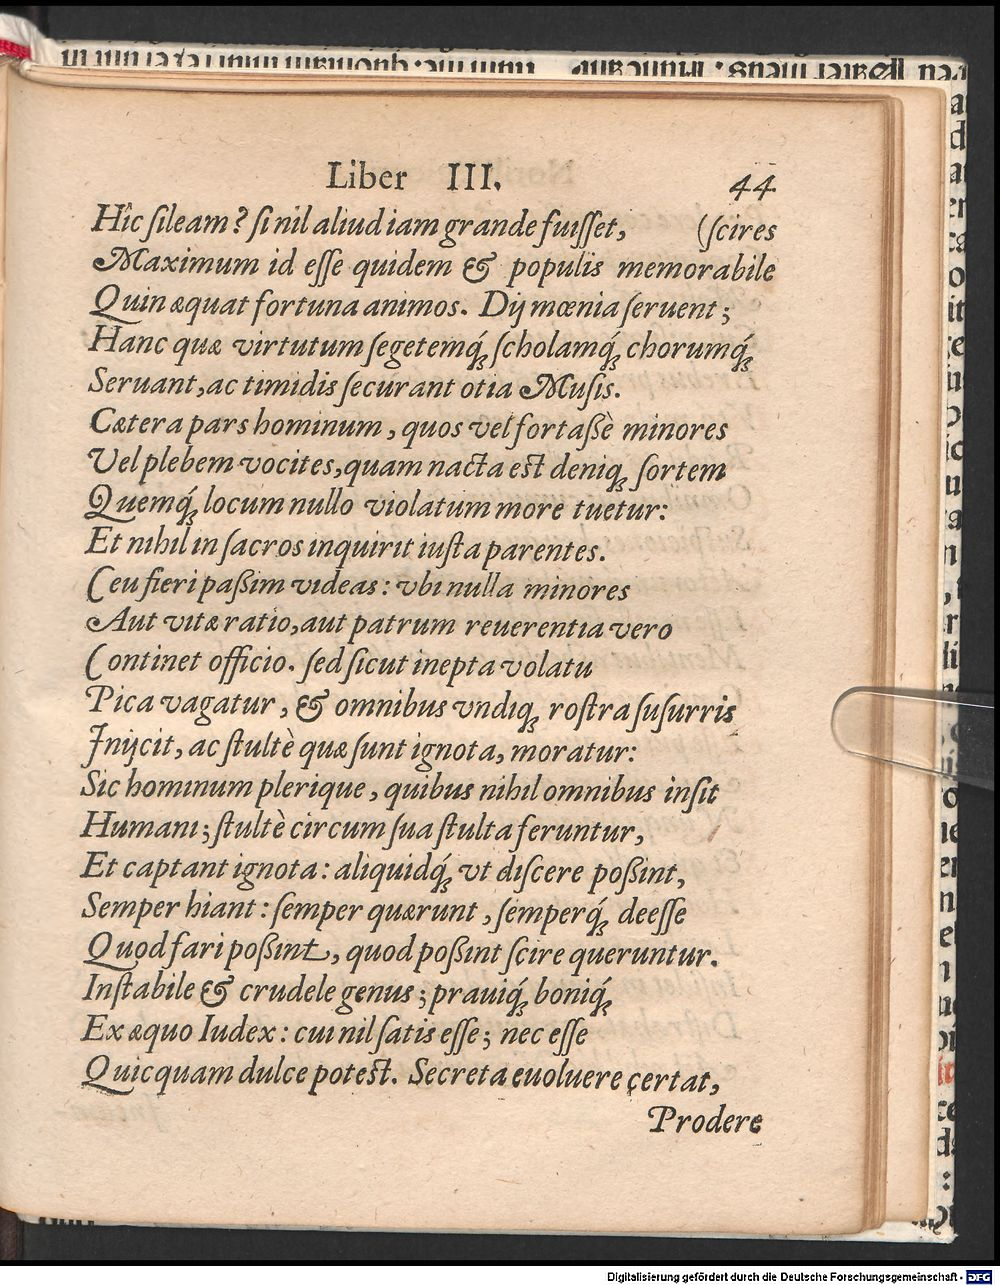 Liber III. 44
Hîc ſileam? ſi nil aliud iam grande fuiſſet, (ſcires
Maximum id eſſe quidem & populis memorabile
Quin æquat fortuna animos. Dij mœnia ſeruent;
Hanc quæ virtutum ſegetemq́; ſcholamq́; chorumq́;
Seruant, ac timidis ſecurant otia Muſis.
Cætera pars hominum, quos vel fortaßè minores
Vel plebem vocites, quam nacta est deniq; ſortem
Quemq́; locum nullo violatum more tuetur:
Et nihil in ſacros inquirit iuſta parentes.
Ceu fieri paßim videas: vbi nulla minores
Aut vitæ ratio, aut patrum reuerentia vero
Continet officio. ſed ſicut inepta volatu
Pica vagatur, & omnibus vndiq; roſtra ſuſurris
Inijcit, ac ſtultè quæ ſunt ignota, moratur:
Sic hominum plerique, quibus nihil omnibus inſit
Humani; ſtultè circum ſua ſtulta feruntur,
Et captant ignota: aliquidq́; vt diſcere poßint,
Semper hiant: ſemper quærunt, ſemperq́; deeſſe
Quod fari poßint, quod poßint ſcire queruntur.
Inſtabile & crudele genus; prauiq́; boniq́;
Ex æquo Iudex: cui nil ſatis eſſe; nec eſſe
Quicquam dulce potest. Secreta euoluere certat,
Prodere
Digitalisierung gefördert durch die Deutsche Forschungsgemeinschaft - DFG